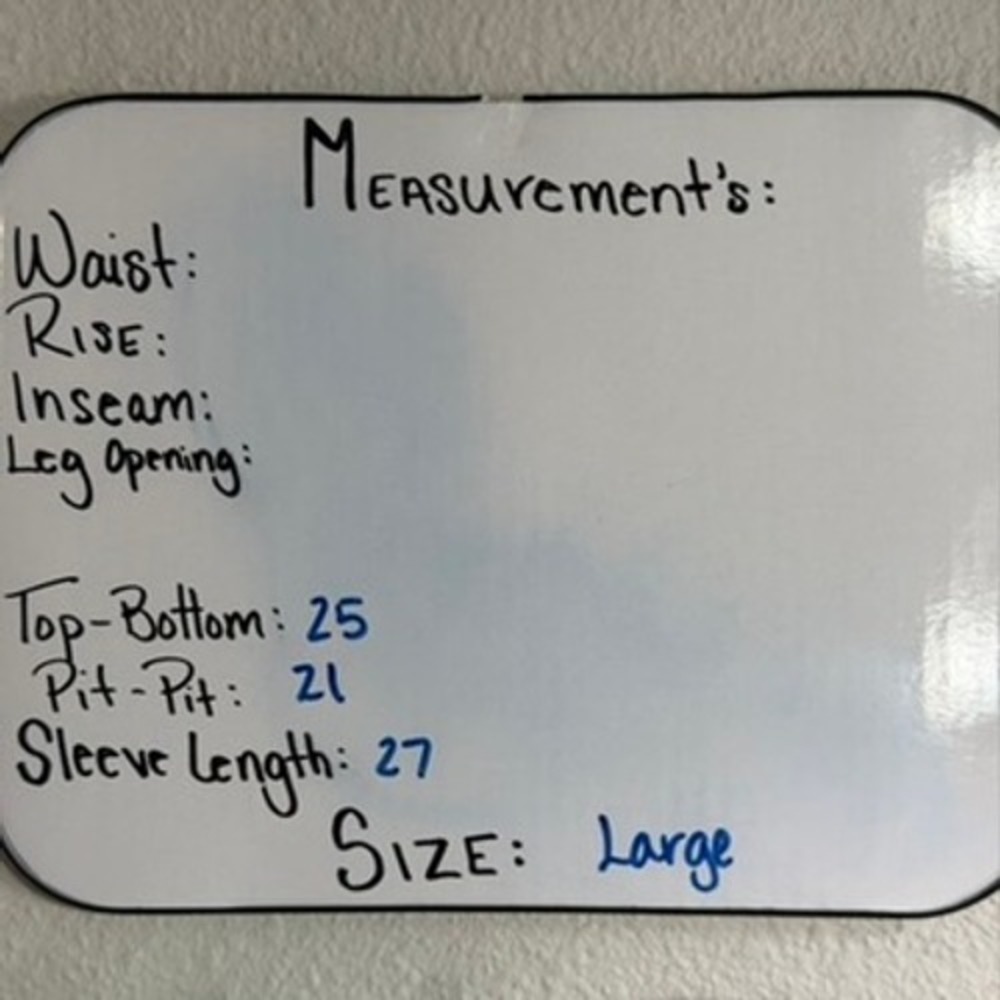 MEASurement's:
Waist:
RISE:
Inseam:
Leg Opening:
Top-Bottom: 25
Pit-Pit: 21
Sleeve Length: 27
SIZE: Large